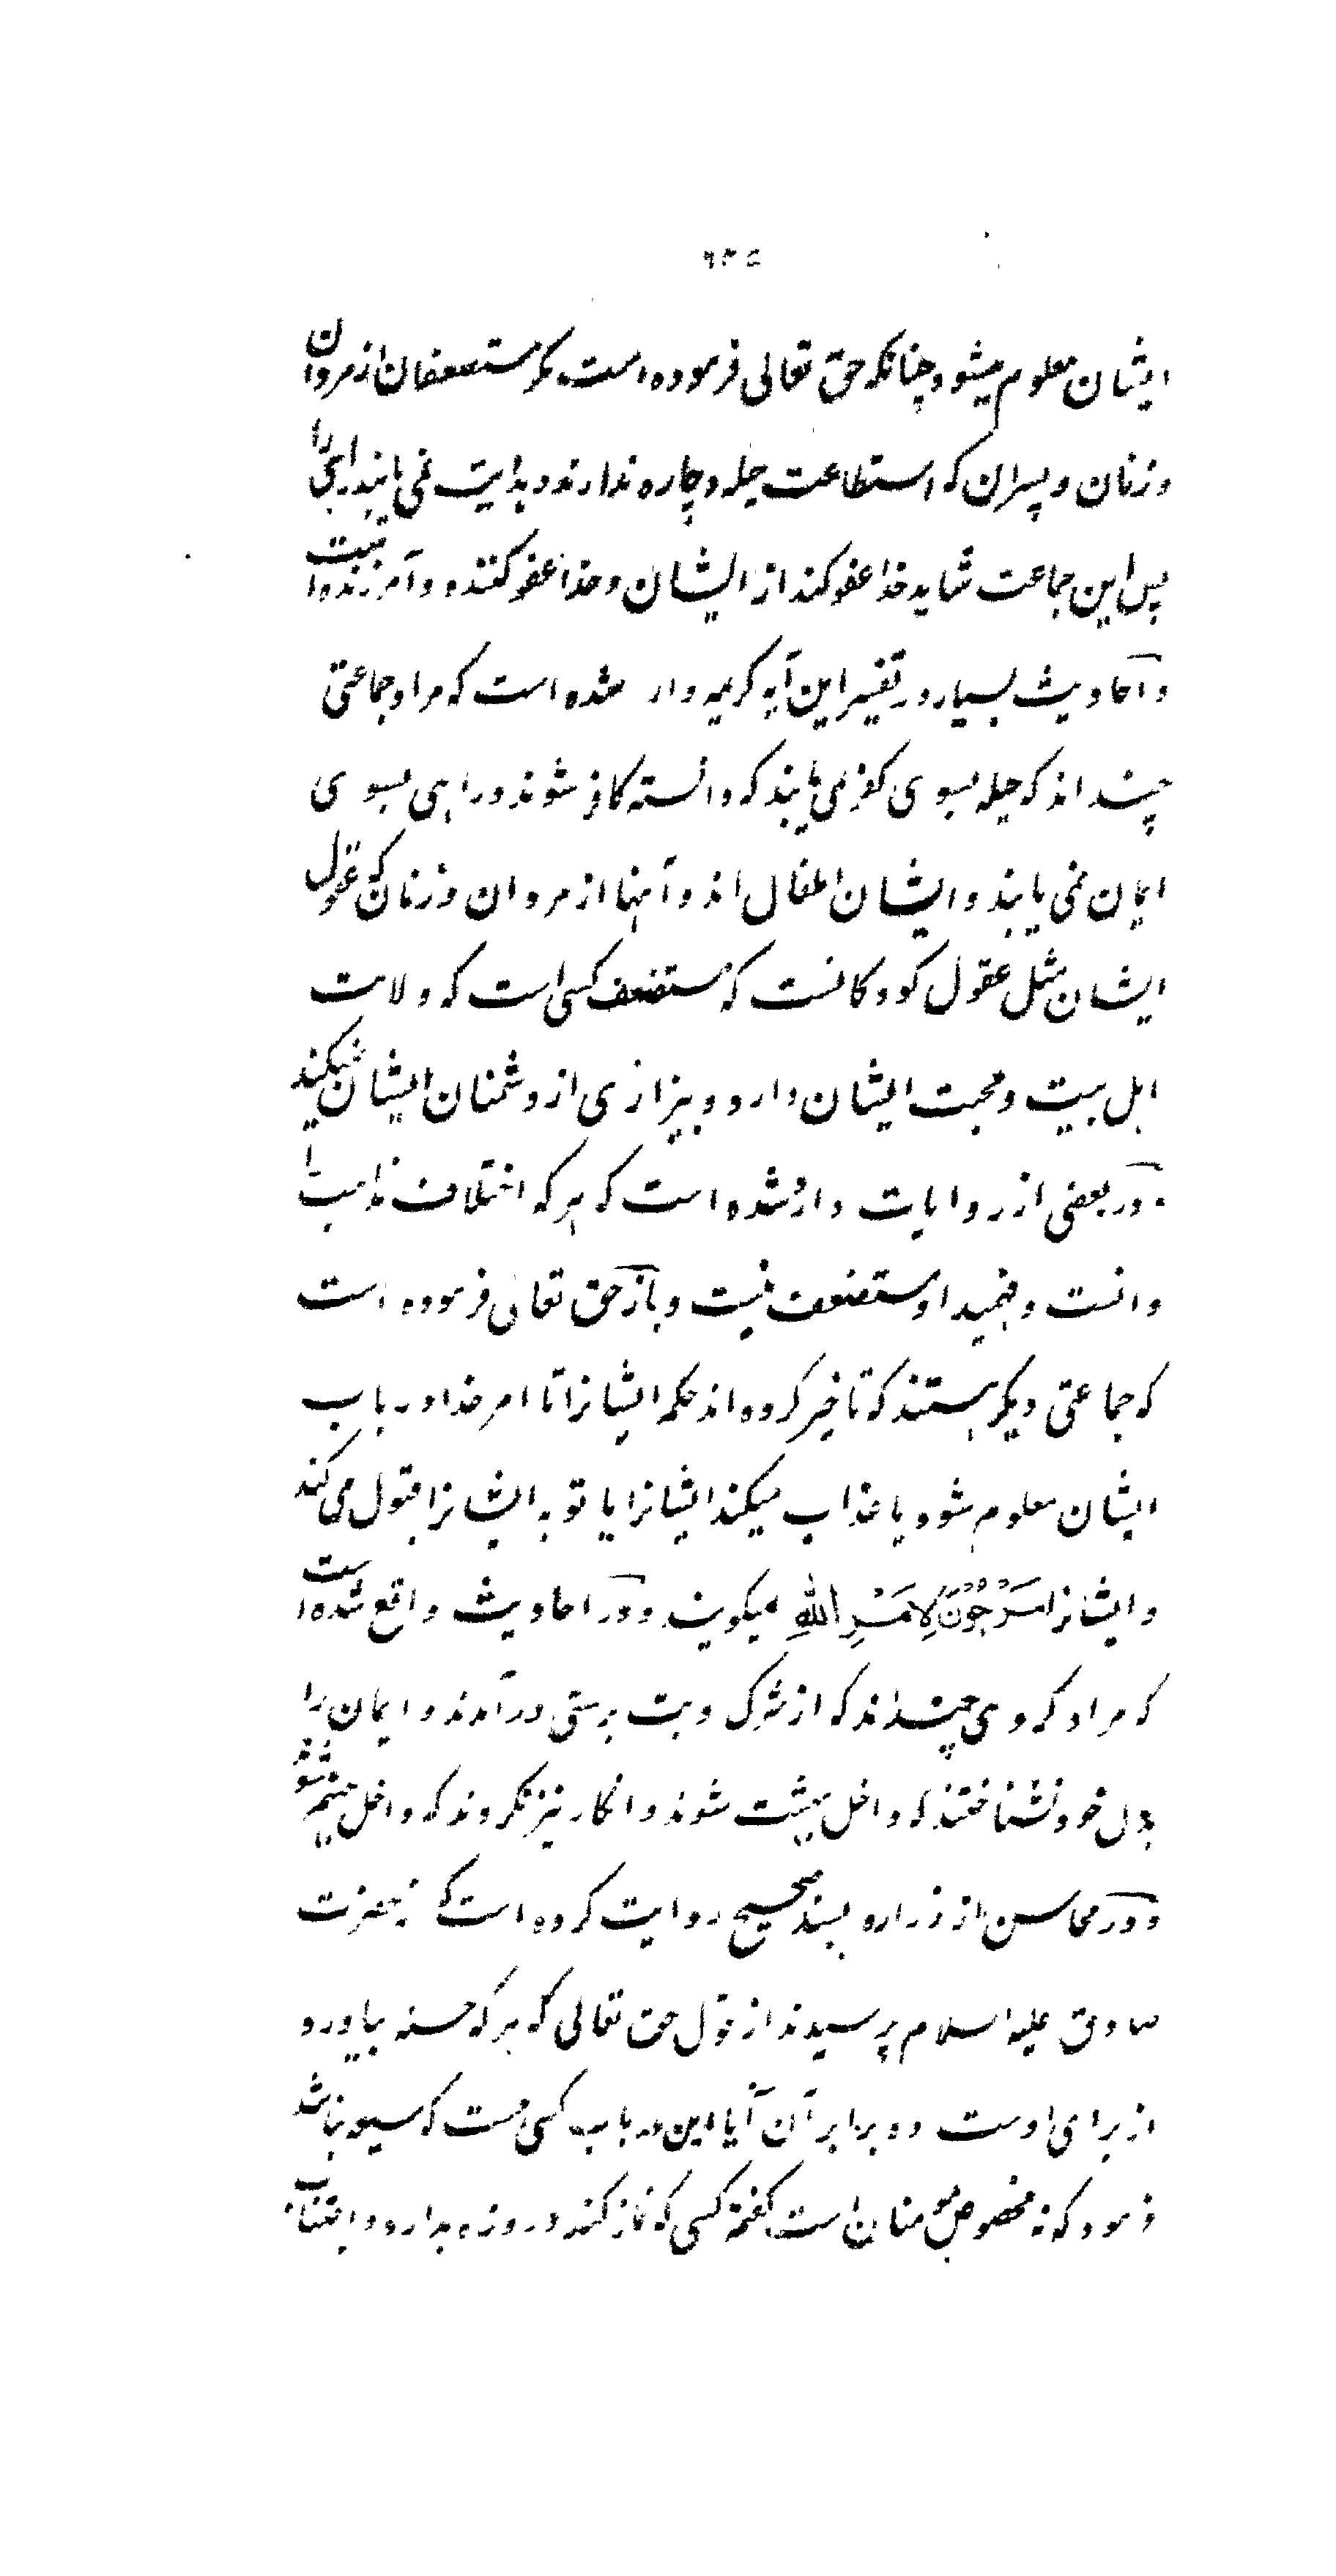 ۶۳۵
ایشان معلوم میشود چنانکه حق تعالی فرموده است مکر مستضعفان از مردان
و زنان و پسران که استطاعت حیله و چاره ندارند و هدایت نمی یابند راهی را
پس این جماعت شاید خدا عفو کند از ایشان و خدا عفو کننده و آمرزنده است
و احادیث بسیار در تفسیر این آیه کریمه وارد شده است که مراد جماعتی
چند اند که حیله بسوی کفر نمی یابند که دانسته کافر شوند و راهی بسوی
ایمان نمی یابند و ایشان اطفال اند و آنها از مردان و زنان که عقول
ایشان مثل عقول کودکانست که مستضعف کسی است که ولایت
اهل بیت و محبت ایشان دارد و بیزاری از دشمنان ایشان نمیکند
و در بعضی از روایات وارد شده است که هر که اختلاف مذاهب را
دانست و فهمید او مستضعف نیست و باز حق تعالی فرموده است
که جماعتی دیکر هستند که تاخیر کرده اند حکم ایشانرا تا امر خدا در باب
ایشان معلوم شود یا عذاب میکند ایشانرا یا توبه ایشانرا قبول می کند
و ایشانرا مَرْجُوْنَ لِاَمْرِ اللهِ میکویند و در احادیث واقع شده است
که مراد کروهی چند اند که از شرک و بت پرستی در آمدند و ایمان را
بدل خود نشناختند که داخل بهشت شوند و انکار نیز نکردند که داخل جهنم شوند
و در محاسن از زراره بسند صحیح روایت کرده است که از حضرت
صادق علیه اسلام پرسیدند از قول حق تعالی که هر که حسنه بیاورد
از برای اوست ده برابر آن آیا این در باب کسی هست که شیعه نباشد
فرمود که نه مخصوص مومنان است کفتم کسی که نماز کند و روزه بدارد و اجتناب